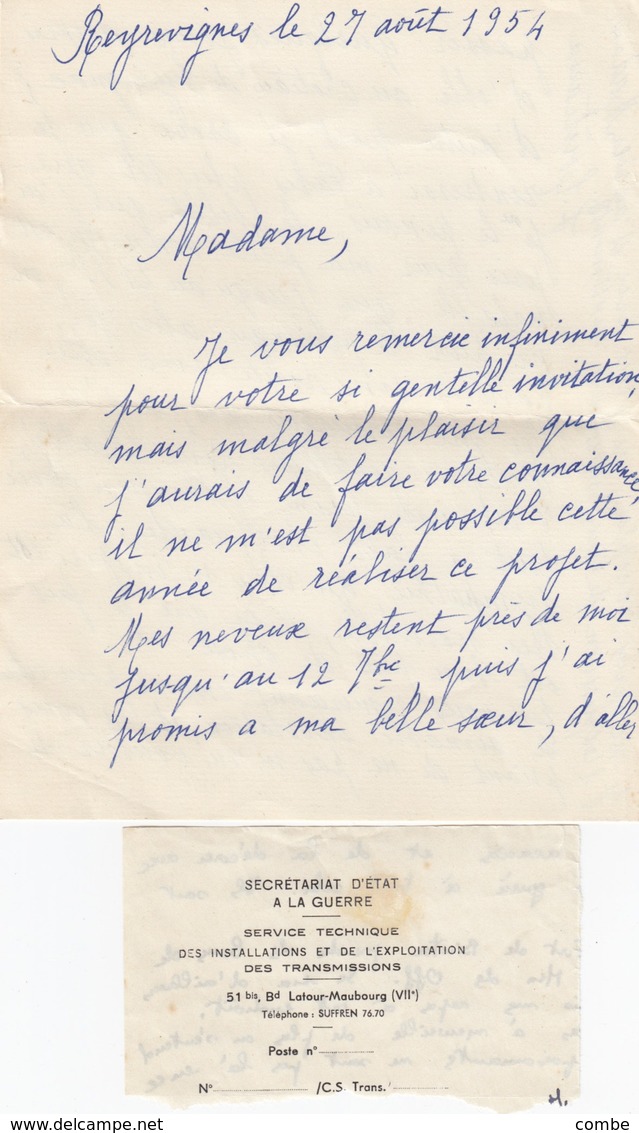 Reyrevignes le 27 août 1954
Madame,
Je vous remercie infiniment
pour votre si gentelle invitation,
mais malgré le plaisir que
j'aurais de faire votre connaissance,
il ne m'est pas possible cette
année de réaliser ce projet.
Mes neveux restent près de moi
jusqu'au 12 7bre, puis j'ai
promis a ma belle sœur, d'aller
SECRÉTARIAT D'ÉTAT
A LA GUERRE
SERVICE TECHNIQUE
DES INSTALLATIONS ET DE L'EXPLOITATION
DES TRANSMISSIONS
51 bis, Bd Latour-Maubourg (VIIe)
Téléphone : SUFFREN 76.70
Poste n°
N° /C.S. Trans.
combe